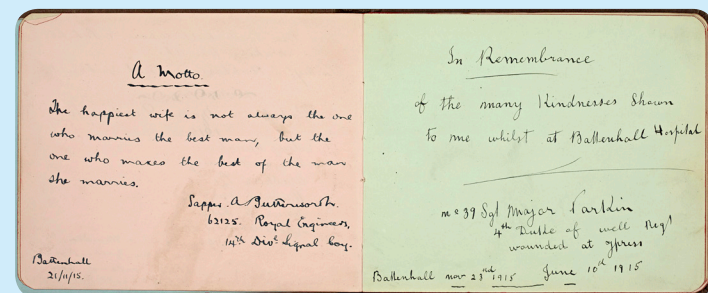 A Motto.
The happiest wife is not always the one
who marries the best man, but the
one who makes the best of the man
she marries.
Sapper. A Butterworth.
62125. Royal Engineers,
14th Divl Signal Coy.
Battenhall
21/11/15.
In Remembrance
of the many Kindnesses Shown
to me whilst at Battenhall Hospital
39 Sgt Major Parkin
4th Duke of well Regt
wounded at Ypress
Battenhall nov 23rd 1915 June 10th 1915